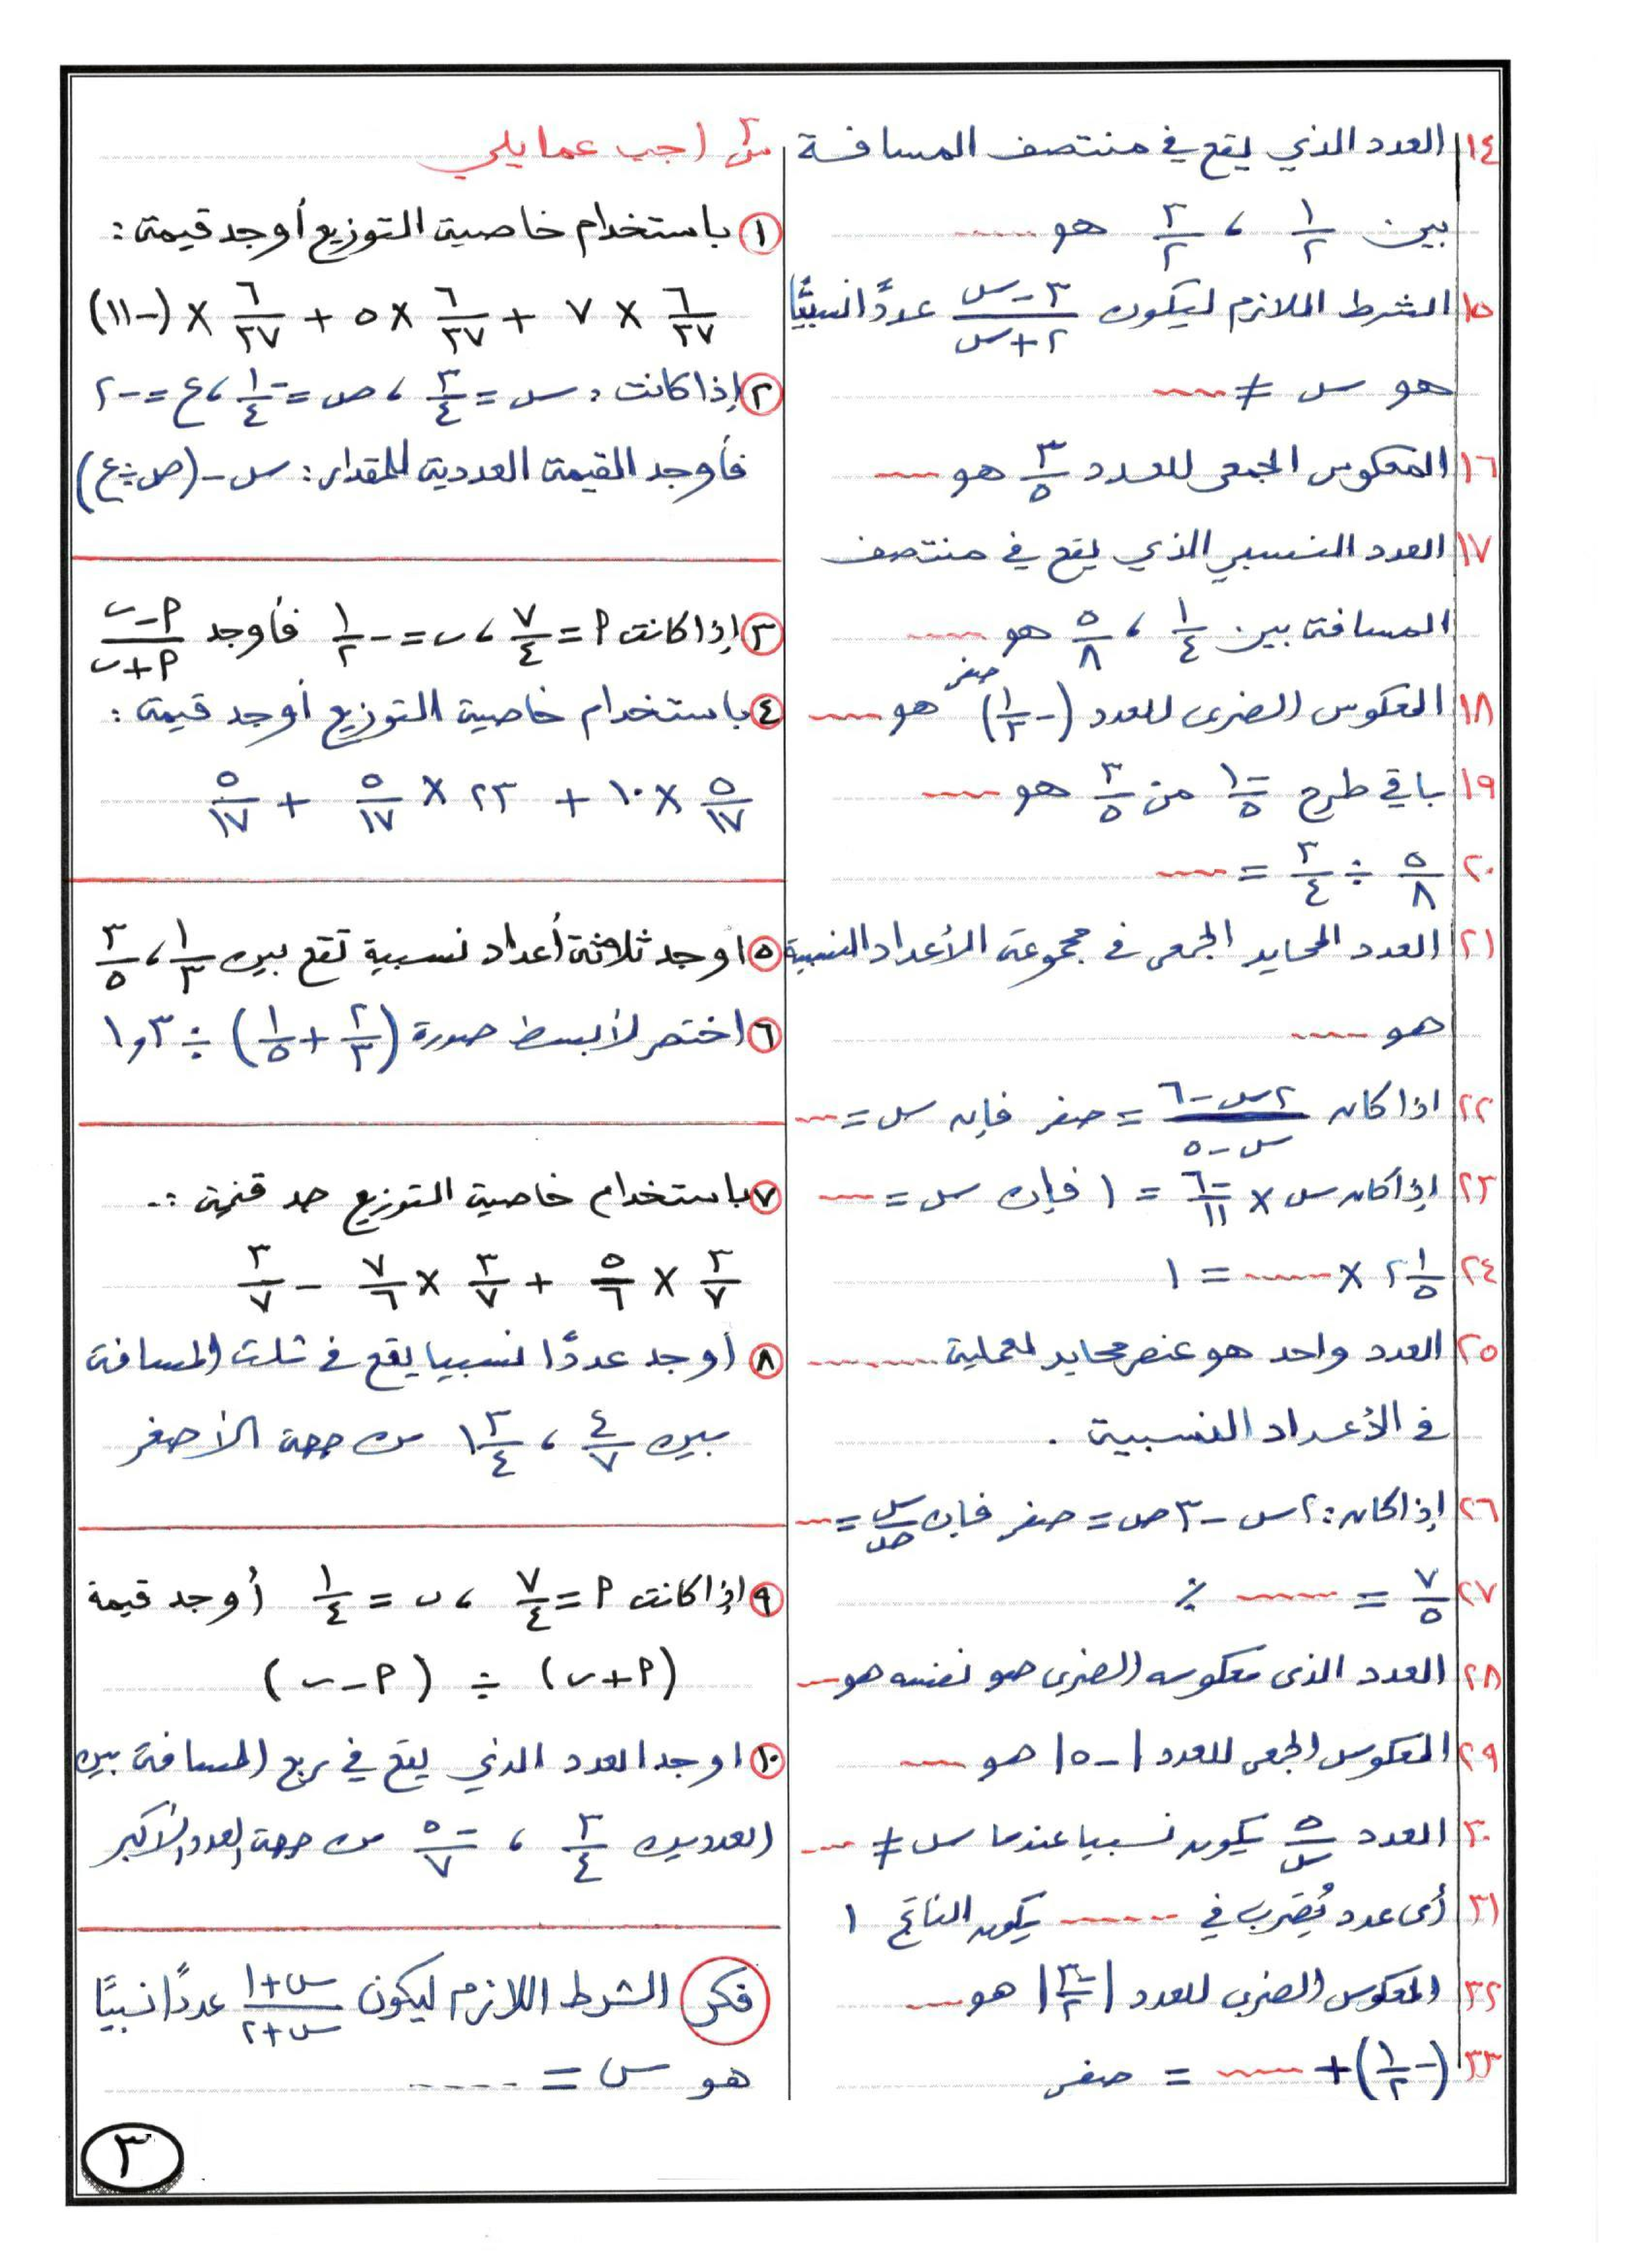 ١٤ العدد الذي يقع في منتصف المسافة
بين ١/٢ ، ٣/٢ هو ......
١٥ الشرط اللازم ليكون (٣ - س)/(٢ + س) عددًا نسبيًا
هو س ≠ ......
١٦ المعكوس الجمعى للعدد ٣/٥ هو ......
١٧ العدد النسبي الذي يقع في منتصف
المسافة بين ١/٤ ، ٥/٨ هو ......
١٨ المعكوس الضربى للعدد (-١/٣)^صفر هو ......
١٩ باقي طرح -١/٥ من ٣/٥ هو ......
٢٠ ٥/٨ ÷ ٣/٤ = ......
٢١ العدد المحايد الجمعى في مجموعة الأعداد النسبية
هو ......
٢٢ اذا كان (٢س - ٦)/(س - ٥) = صفر فإن س = ......
٢٣ إذا كان س × -٦/١١ = ١ فإن س = ......
٢٤ ٢ ١/٥ × ...... = ١
٢٥ العدد واحد هو عنصر محايد لعملية ......
في الأعداد النسبية .
٢٦ إذا كان : ٢س - ٣ص = صفر فإن س/ص = ......
٢٧ ٧/٥ = ...... ٪
٢٨ العدد الذى معكوسه الضربى هو نفسه هو ......
٢٩ المعكوس الجمعى للعدد |-٥| هو ......
٣٠ العدد ٥/س يكون نسبيا عندما س ≠ ......
٣١ أى عدد يُضرب في ...... يكون الناتج ١
٣٢ المعكوس الضربى للعدد |-٣/٢| هو ......
٣٣ (-١/٢) + ...... = صفر
س٢ اجب عما يلي
١ باستخدام خاصية التوزيع أوجد قيمة :
٦/٣٧ × ٧ + ٦/٣٧ × ٥ + ٦/٣٧ × (-١١)
٢ إذا كانت : س = ٣/٤ ، ص = -١/٤ ، ع = -٢
فأوجد القيمة العددية للمقدار : س - (ص ÷ ع)
٣ إذا كانت م = ٧/٤ ، ب = -١/٢ فأوجد (م - ب)/(م + ب)
٤ باستخدام خاصية التوزيع أوجد قيمة :
٥/١٧ × ١٠ + ٢٣ × ٥/١٧ + ٥/١٧
٥ اوجد ثلاثة أعداد نسبية تقع بين ١/٣ ، ٣/٥
٦ اختصر لأبسط صورة (٢/٣ + ١/٥) ÷ ١,٣
٧ باستخدام خاصية التوزيع جد قيمة :
٣/٧ × ٥/٦ + ٣/٧ × ٧/٦ - ٣/٧
٨ أوجد عددًا نسبيا يقع في ثلث المسافة
بين ٤/٧ ، ١ ٣/٤ من جهة الأصغر
٩ إذا كانت م = ٧/٤ ، ب = ١/٤ أوجد قيمة
(م + ب) ÷ (م - ب)
١٠ اوجد العدد الذي يقع في ربع المسافة بين
العددين ٣/٤ ، -٥/٧ من جهة العدد الأكبر
فكر الشرط اللازم ليكون (س + ١)/(س + ٢) عددًا نسبيًا
هو س = ......
٣